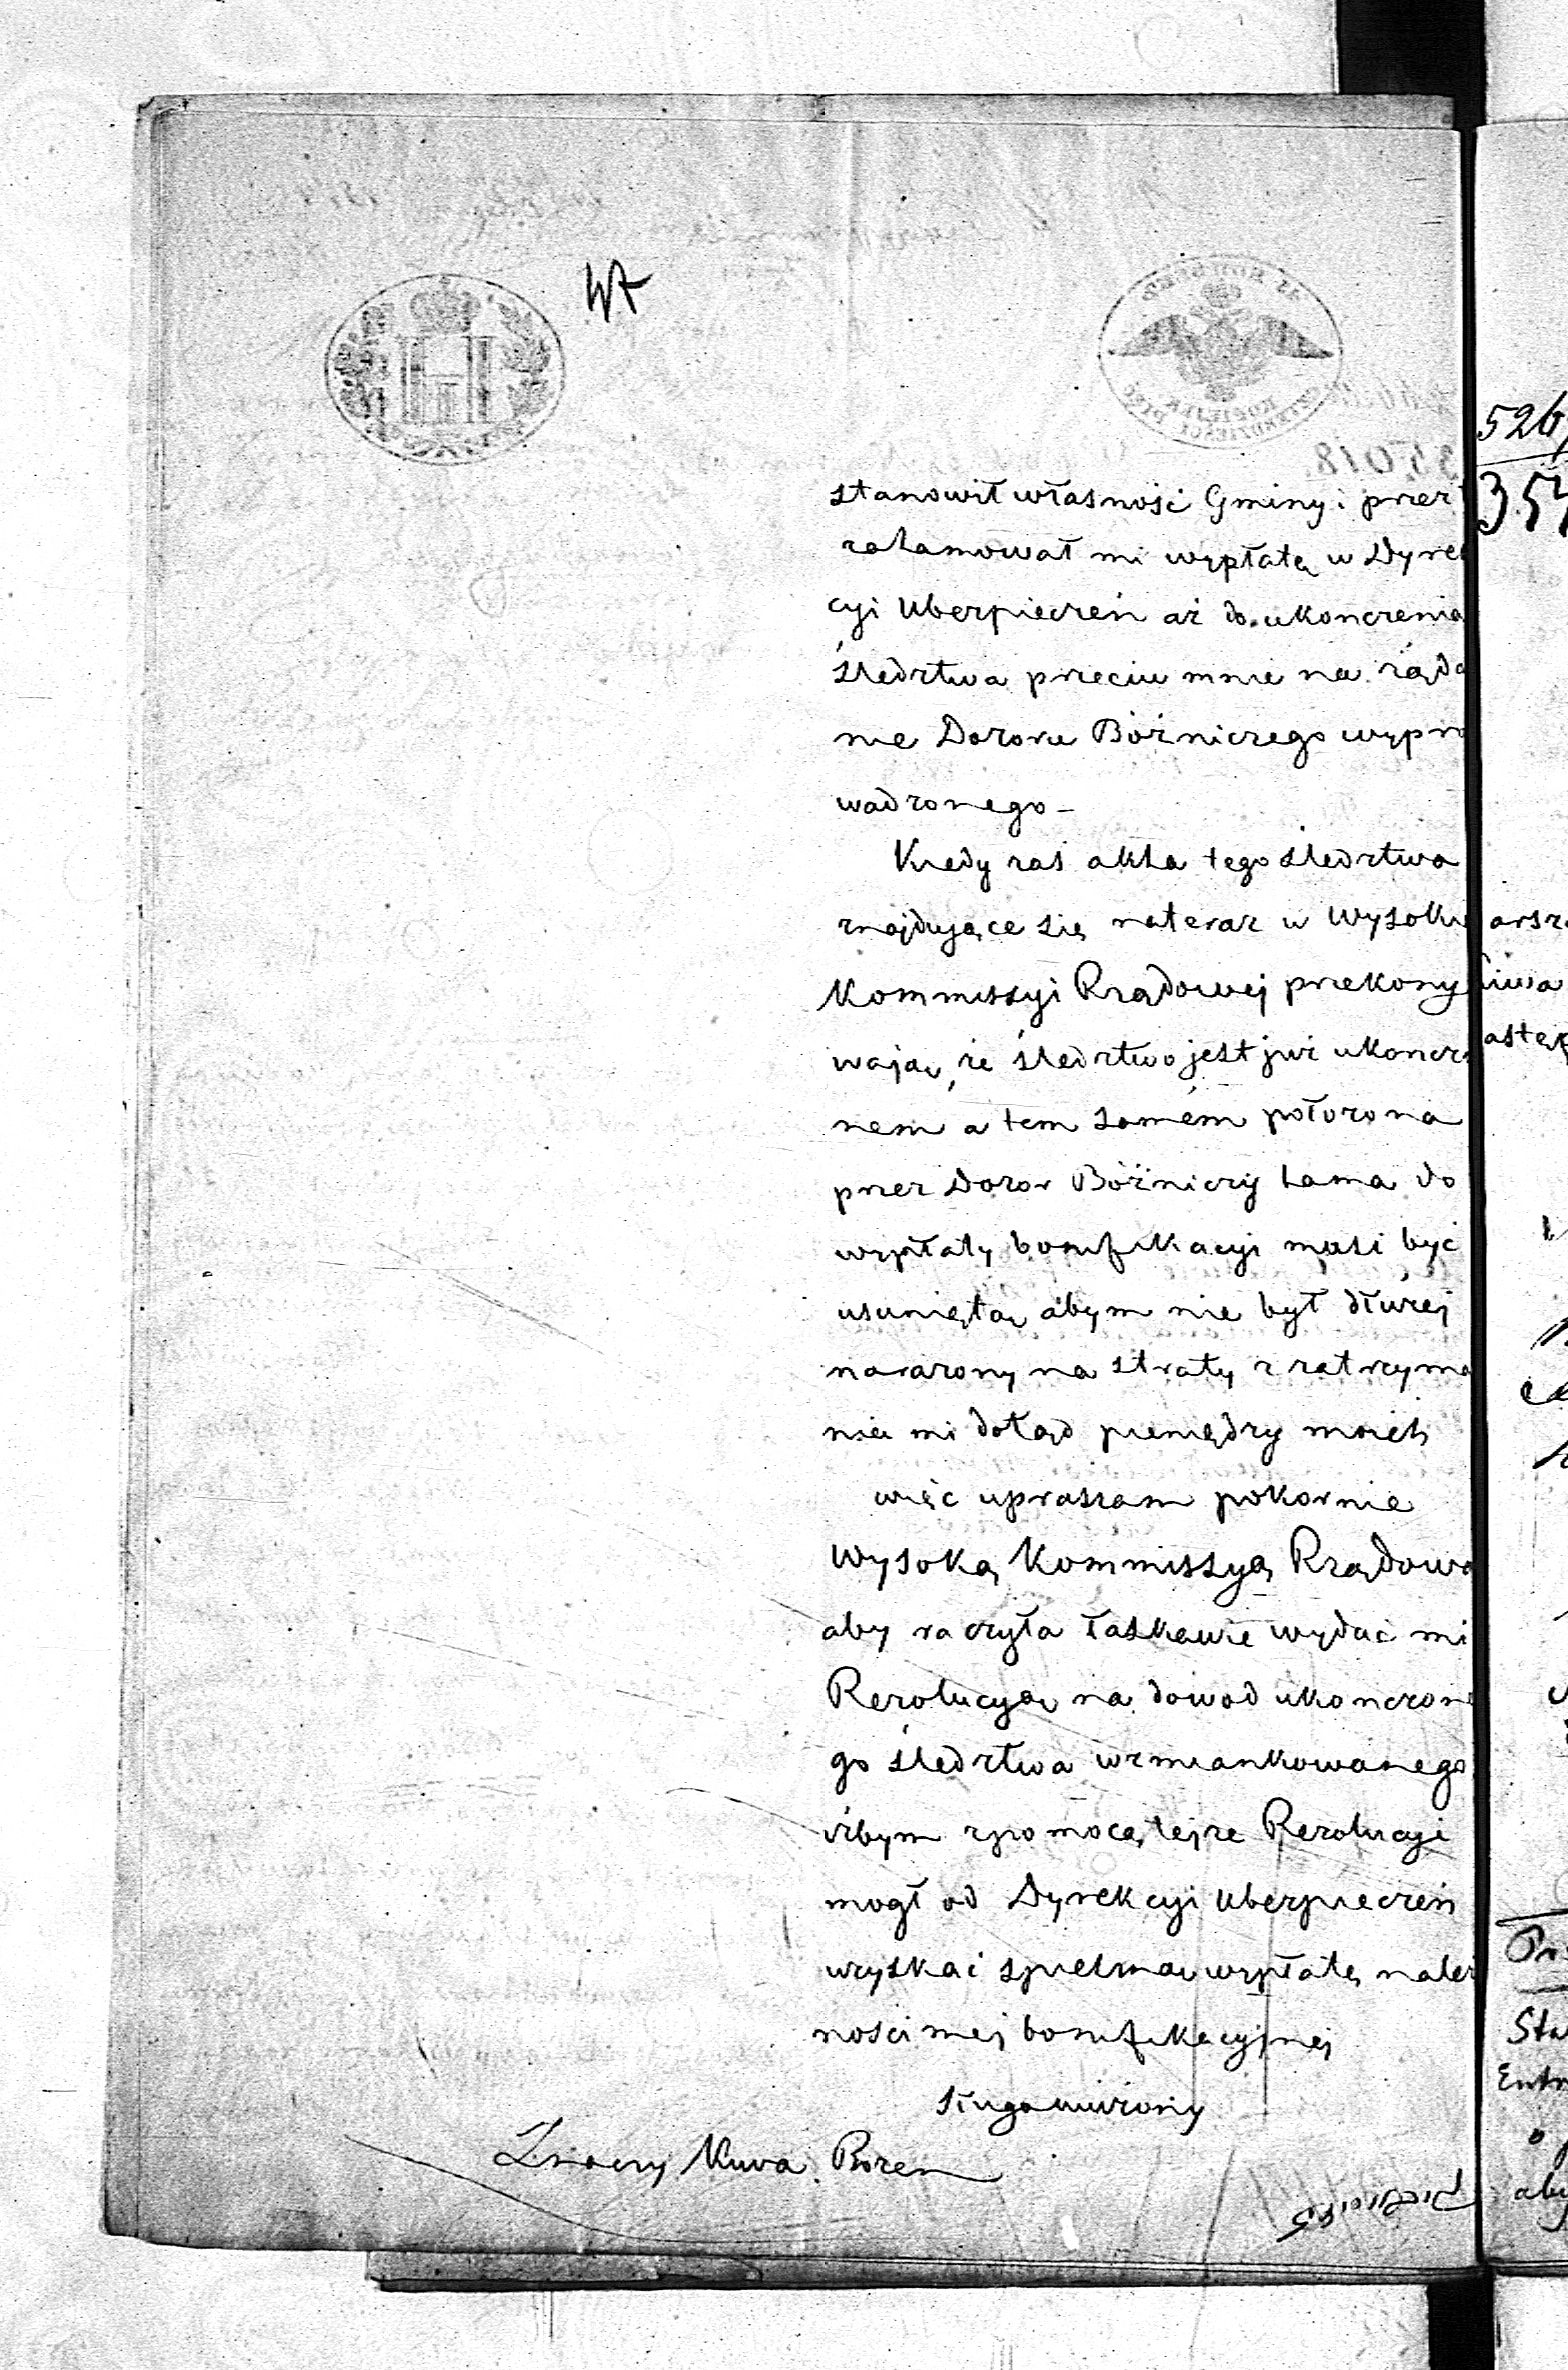 stanowił własność Gminy i przez
zatamował mi wypłatę w Dyrek
cyi Ubezpieczeń aż do ukonczenia
śledztwa przeciw mnie na żąda
nie Dozoru Bóżniczego wypro
wadzonego –
Kiedy zaś akta tego śledztwa
znajdujące się na teraz w Wysokiej
Kommissyi Rządowej przekony
wają, że śledztwo jest już ukoncz
nem a tem samém położona
przez Dozor Bóżniczy tama do
wypłaty bonifikacyi musi być
usuniętą abym nie był dłużej
narazony na straty z zatrzyma
nia mi dotąd pieniędzy moich
więc upraszam pokornie
Wysoką Kommissyą Rządową
aby raczyła łaskawie wydać mi
Rezolucyą na dowod ukonczone
go śledztwa wzmiankowanego
iżbym z pomocą tejże Rezolucyi
mogł od Dyrekcyi Ubezpieczeń
uzyskać spełna wypłatę należ
ności mej bonifikacyjnej
sługa uniżony
Kuva Bozen
526
357